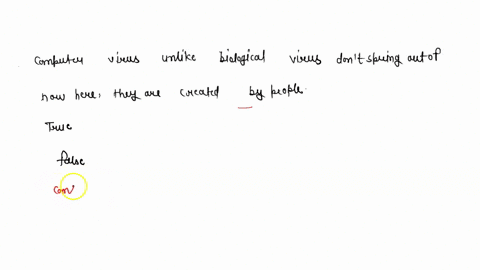 Computer virus unlike biological virus don't spring out of
now here, they are created by people.
True
false
com